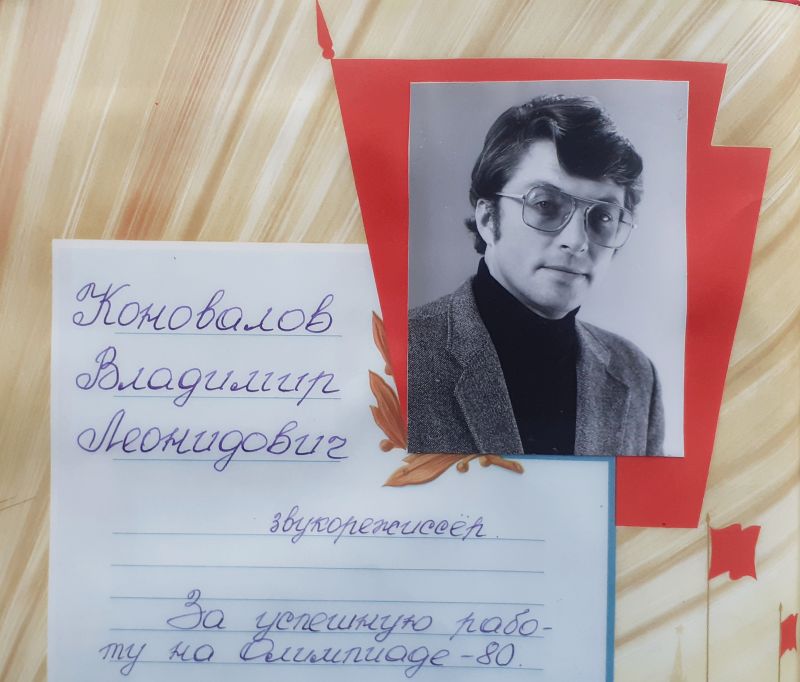 Коновалов
Владимир
Леонидович
звукорежиссёр.
За успешную рабо-
ту на Олимпиаде-80.